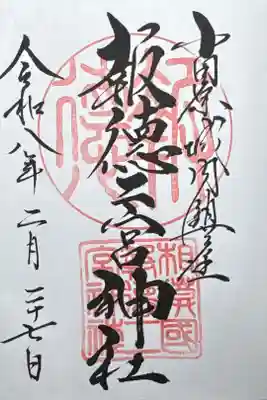 小田原城内鎮座
報徳二宮神社
相模國
報徳二
宮神社
令和八年 二月 二十七日